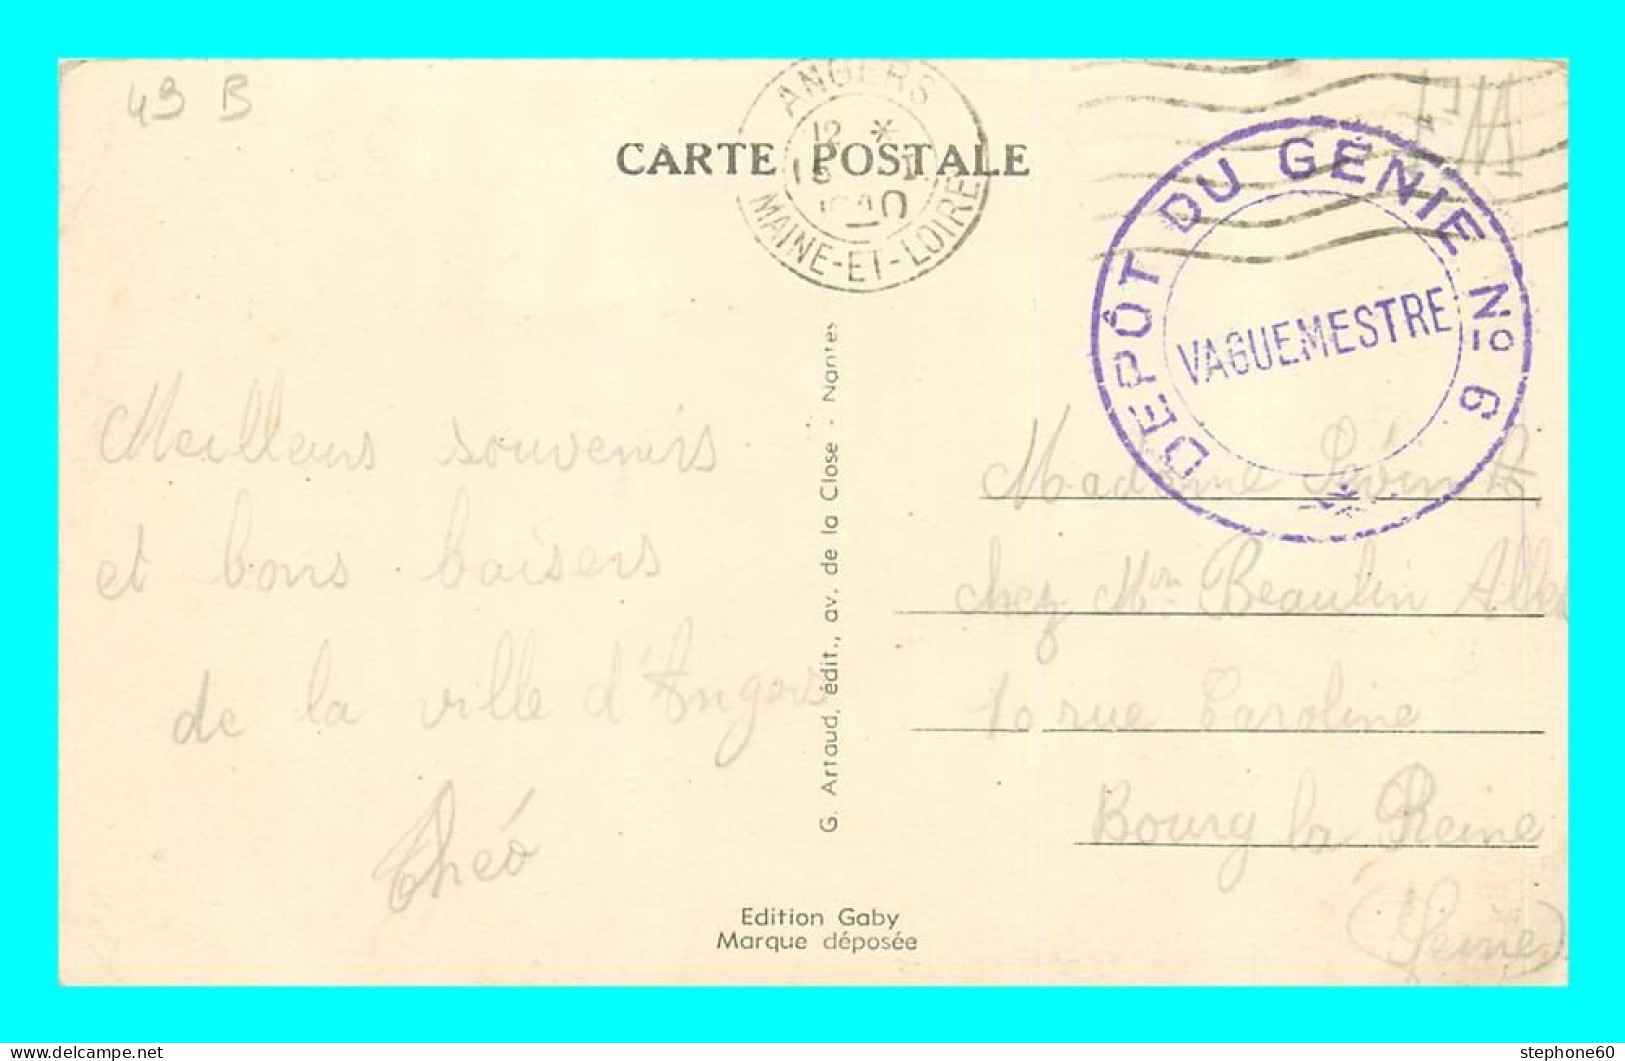 49 B
ANGERS
12 *
MAINE-ET-LOIRE
CARTE POSTALE
DEPÔT DU GÉNIE Nº 6
VAGUEMESTRE
Meilleurs souvenirs
et bons baisers
de la ville d'Angers
Théo
G. Artaud, édit., av. de la Close - Nantes
Madame
chez Mme Beaulin
10 rue Caroline
Bourg la Reine
(Seine)
Edition Gaby
Marque déposée
stephone60